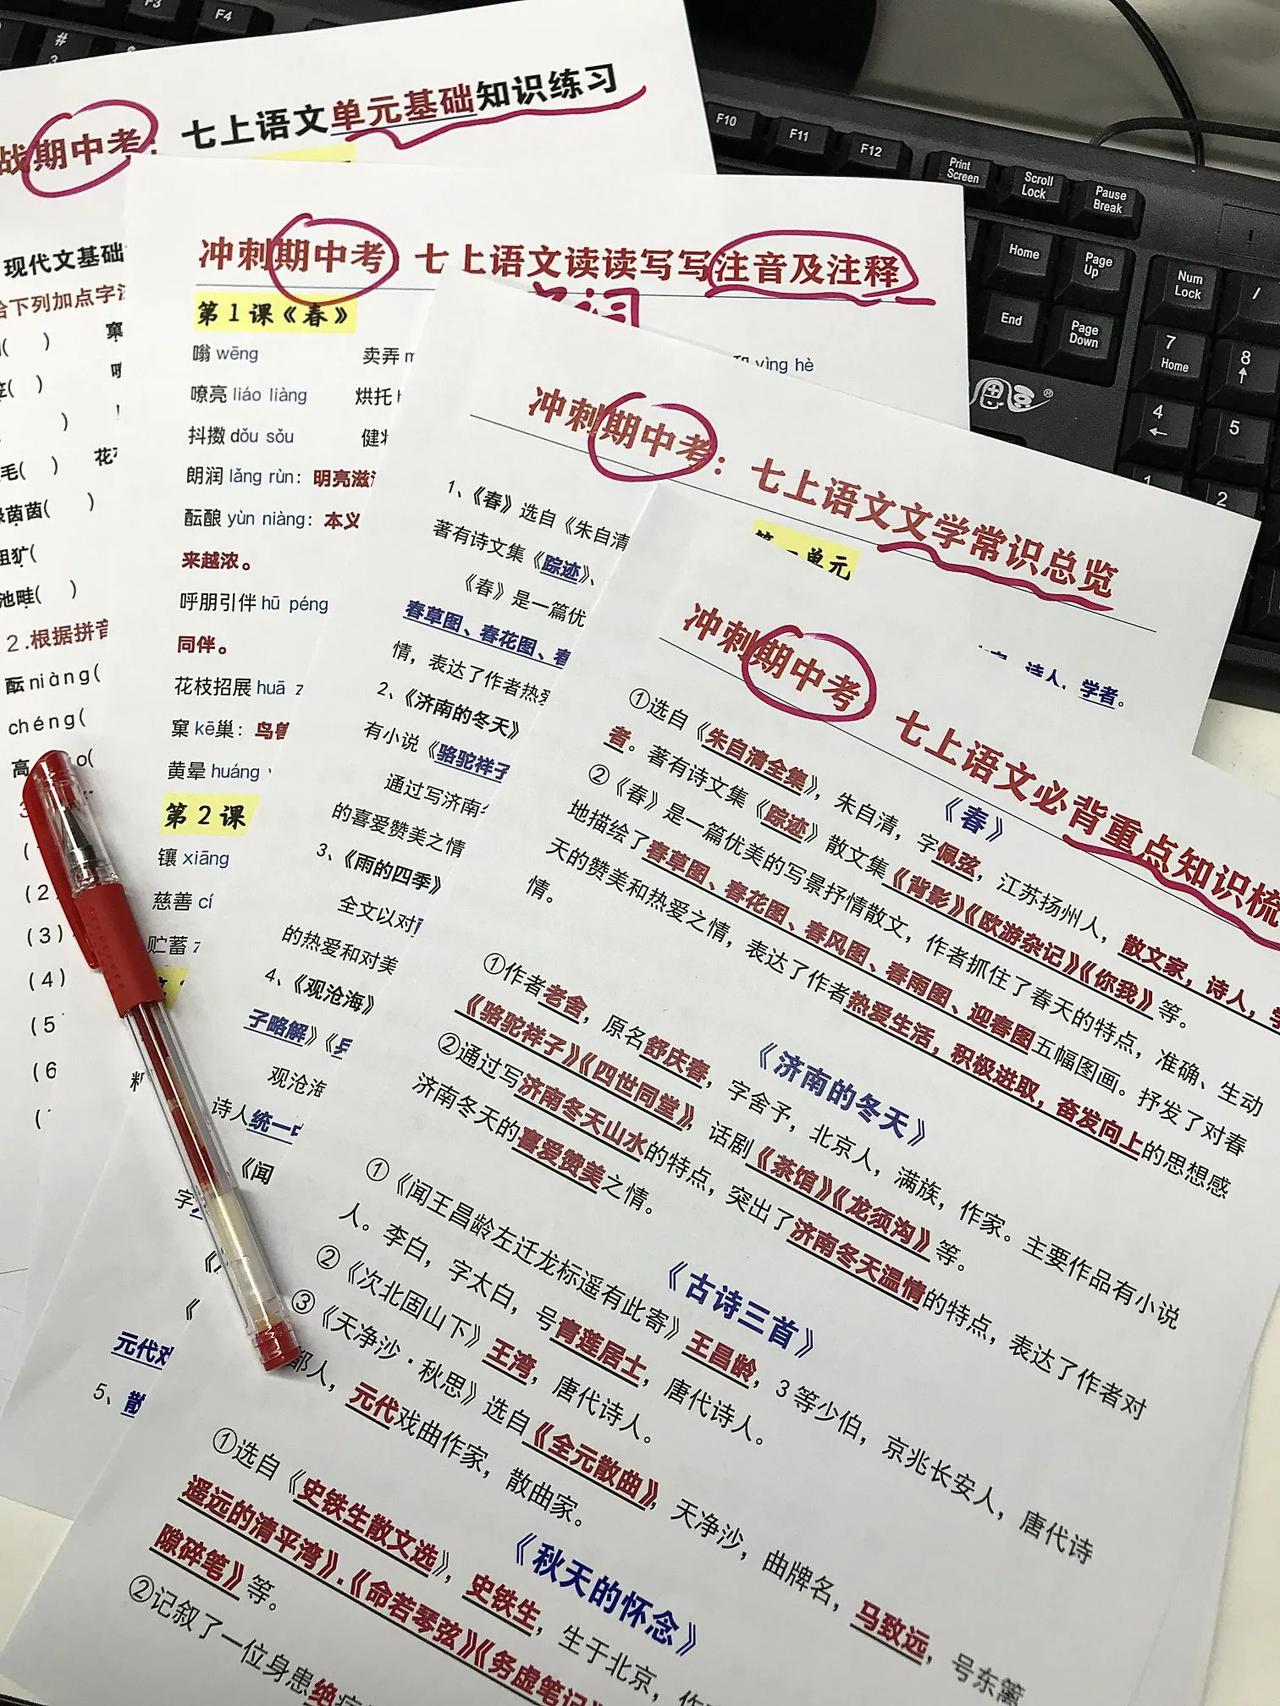 战期中考：七上语文单元基础知识练习
现代文基础
给下列加点字
毛( ) 花
茵茵( )
池畦( )
2.根据拼音
酝niàng(
chéng(
高 o(
(2)
(3)
(4)
(5
(6
冲刺期中考 七上语文读读写写注音及注释
第1课《春》
嗡 wēng 卖弄 yìng hè
嘹亮 liáo liàng 烘托
抖擞 dǒu sǒu 健
朗润 lǎng rùn：明亮滋
酝酿 yùn niàng：本义
来越浓。
呼朋引伴 hū péng
同伴。
花枝招展 huā z
窠 kē巢：鸟兽
黄晕 huáng
第2课
镶 xiāng
慈善 cí
贮蓄
冲刺期中考：七上语文文学常识总览
第一单元
诗人，学者。
1、《春》选自《朱自清
著有诗文集《踪迹》、
《春》是一篇优
春草图、春花图、春
情，表达了作者热爱
2、《济南的冬天》
有小说《骆驼祥子
通过写济南
的喜爱赞美之情
3、《雨的四季》
全文以对
的热爱和对美
4、《观沧海》
子略解》《兵
观沧海
诗人统一
《闻
字
元代戏
5、散
冲刺期中考 七上语文必背重点知识梳
《春》
①选自《朱自清全集》，朱自清，字佩弦，江苏扬州人，散文家，诗人，学
者。著有诗文集《踪迹》散文集《背影》《欧游杂记》《你我》等。
②《春》是一篇优美的写景抒情散文，作者抓住了春天的特点，准确、生动
地描绘了春草图、春花图、春风图、春雨图、迎春图五幅图画。抒发了对春
天的赞美和热爱之情，表达了作者热爱生活，积极进取，奋发向上的思想感
情。
《济南的冬天》
①作者老舍，原名舒庆春，字舍予，北京人，满族，作家。主要作品有小说
《骆驼祥子》《四世同堂》，话剧《茶馆》《龙须沟》等。
②通过写济南冬天山水的特点，突出了济南冬天温情的特点，表达了作者对
济南冬天的喜爱赞美之情。
《古诗三首》
①《闻王昌龄左迁龙标遥有此寄》王昌龄，3等少伯，京兆长安人，唐代诗
人。李白，字太白，号青莲居士，唐代诗人。
②《次北固山下》王湾，唐代诗人。
③《天净沙·秋思》选自《全元散曲》，天净沙，曲牌名，马致远，号东篱
都人，元代戏曲作家，散曲家。
《秋天的怀念》
①选自《史铁生散文选》，史铁生，生于北京，作
遥远的清平湾》.《命若琴弦》《务虚笔记》
隙碎笔》等。
②记叙了一位身患绝
F3
F4
#
3
F10
F11
F12
Print Screen
Scroll Lock
Pause Break
Home
Page Up
End
Page Down
Num Lock
/
7 Home
8
4
5
1
2
®